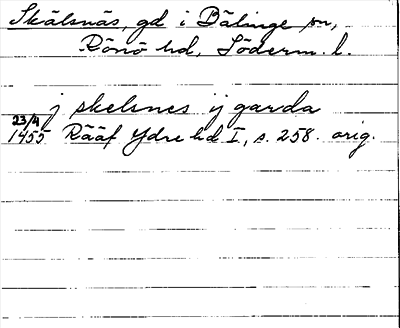 Skälsnäs, gd i Bälinge sn,
Rönö hd, Söderm. l.
j skelsnes ij garda
23/4
1455 Rääf Ydre hd I, s. 258. orig.